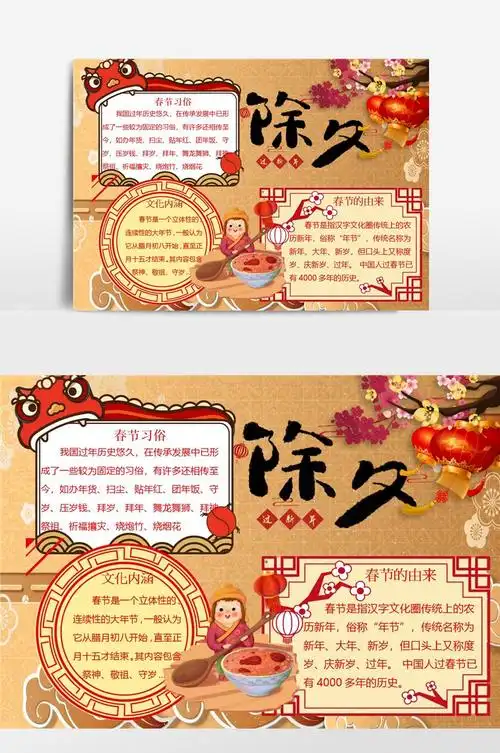 春节习俗
我国过年历史悠久，在传承发展中已形
成了一些较为固定的习俗，有许多还相传至
今，如办年货、扫尘、贴年红、团年饭、守
岁、压岁钱、拜岁、拜年、舞龙舞狮、拜神
祭祖、祈福攘灾、烧炮竹、烧烟花
除夕
过新年
文化内涵
春节是一个立体性的
连续性的大年节，一般认为
它从腊月初八开始，直至正
月十五才结束。其内容包含
祭神、敬祖、守岁...
春节的由来
春节是指汉字文化圈传统上的农
历新年，俗称“年节”，传统名称为
新年、大年、新岁，但口头上又称度
岁、庆新岁、过年。 中国人过春节已
有 4000 多年的历史。
春节习俗
我国过年历史悠久，在传承发展中已形
成了一些较为固定的习俗，有许多还相传至
今，如办年货、扫尘、贴年红、团年饭、守
岁、压岁钱、拜岁、拜年、舞龙舞狮、拜神
祭祖、祈福攘灾、烧炮竹、烧烟花
除夕
过新年
文化内涵
春节是一个立体性的
连续性的大年节，一般认为
它从腊月初八开始，直至正
月十五才结束。其内容包含
祭神、敬祖、守岁...
春节的由来
春节是指汉字文化圈传统上的农
历新年，俗称“年节”，传统名称为
新年、大年、新岁，但口头上又称度
岁、庆新岁、过年。 中国人过春节已
有 4000 多年的历史。